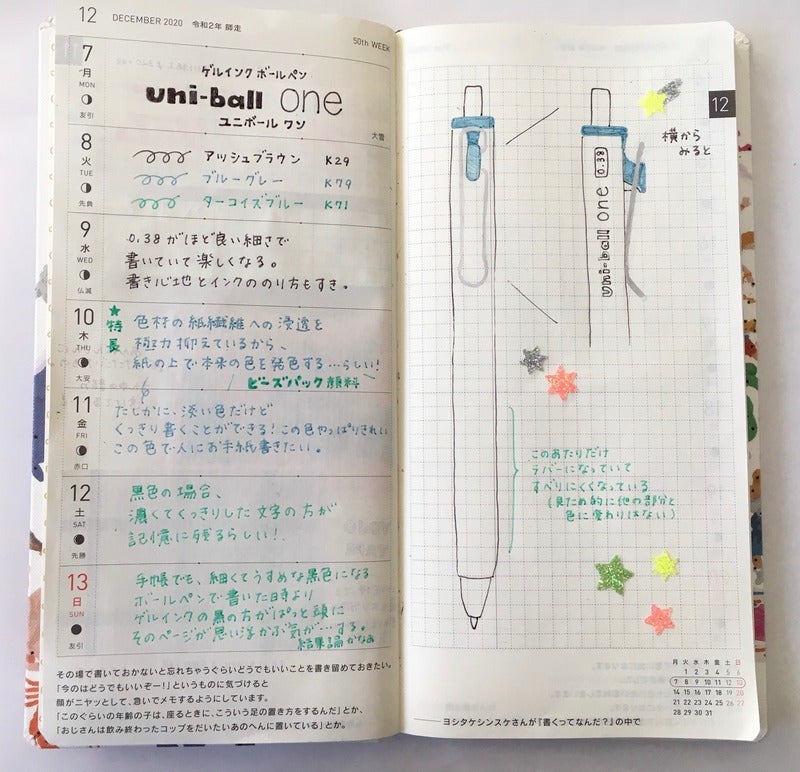 12 DECEMBER 2020 令和2年 師走
50th WEEK
7
月
MON
友引
ゲルインク ボールペン
uni-ball one
ユニボール ワン
大雪
8
火
TUE
先負
アッシュブラウン K29
ブルーグレー K79
ターコイズブルー K71
9
水
WED
仏滅
0.38がほど良い細さで
書いていて楽しくなる。
書き心地とインクののり方もすき。
10
木
THU
大安
★特長
色材の紙繊維への浸透を
極力抑えているから、
紙の上で本来の色を発色する…らしい!
ビーズパック顔料
11
金
FRI
赤口
たしかに、淡い色だけど
くっきり書くことができる!この色やっぱりきれい
この色で人にお手紙書きたい。
12
土
SAT
先勝
黒色の場合、
濃くてくっきりした文字の方が
記憶に残るらしい!
13
日
SUN
友引
手帳でも、細くてうすめな黒色になる
ボールペンで書いた時より
ゲルインクの黒の方がぱっと頭に
そのページが思い浮かぶ気が…する。
結果論かなあ
その場で書いておかないと忘れちゃうぐらいどうでもいいことを書き留めておきたい。
「今のはどうでもいいぞー!」というものに気づけると
顔がニヤッとして、急いでメモするようにしています。
「このぐらいの年齢の子は、座るときに、こういう足の置き方をするんだ」とか、
「おじさんは飲み終わったコップをだいたいあのへんに置いている」とか。
12
横から
みると
0.38
uni-ball one
このあたりだけ
ラバーになっていて
すべりにくくなっている
(見ため的に他の部分と
色に変わりはない)
月 火 水 木 金 土 日
1 2 3 4 5 6
7 8 9 10 11 12 13
14 15 16 17 18 19 20
21 22 23 24 25 26 27
28 29 30 31
──ヨシタケシンスケさんが『書くってなんだ?』の中で